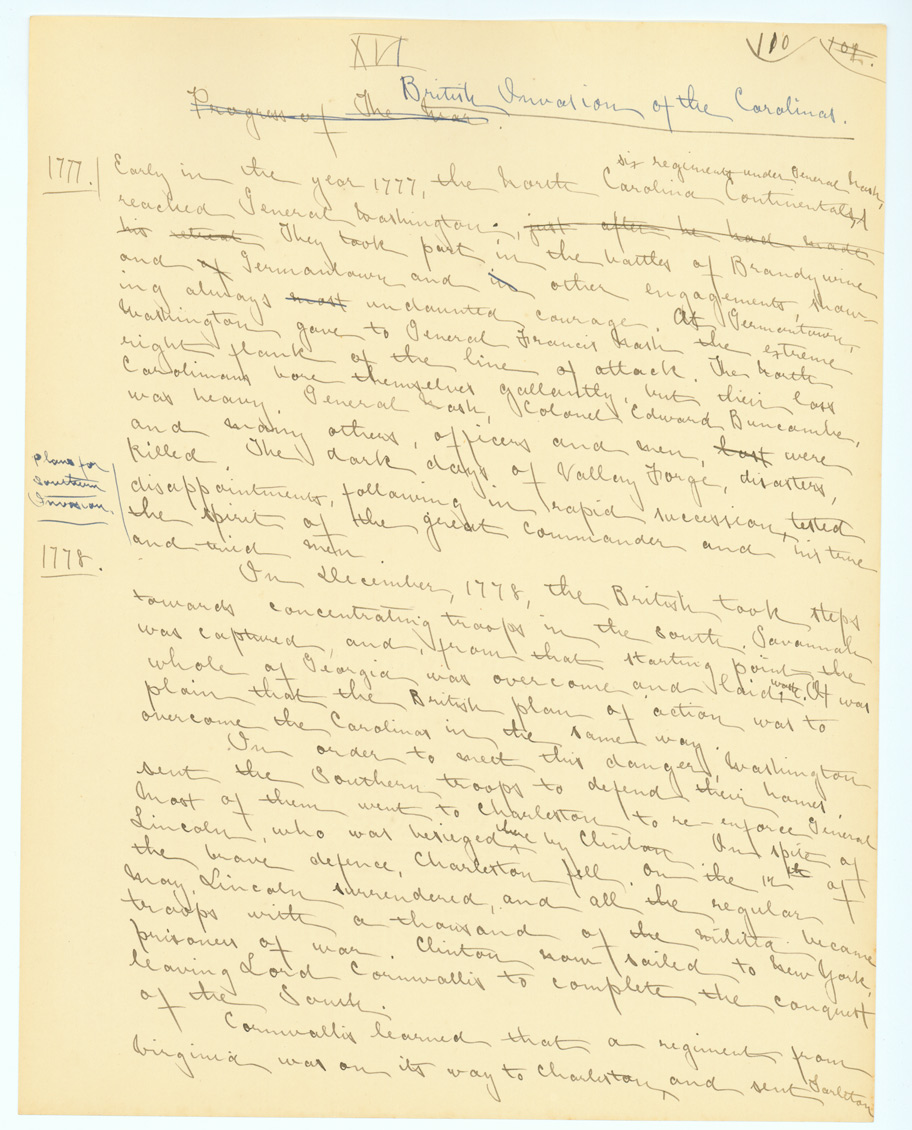 XVI
110 101.
British Invasion of the Carolinas.
Progress of The War.
1777.
six regiments under General Nash,
Early in the year 1777, the North Carolina Continentals,
reached General Washington, just after he had made
his retreat They took part in the battles of Brandywine
and of Germantown and in other engagements, show-
ing always most undaunted courage. At Germantown,
Washington gave to General Francis Nash the extreme
right flank of the line of attack. The North
Carolinians bore themselves gallantly, but their loss
was heavy. General Nash, Colonel Edward Buncombe,
and many others, officers and men, lost were
killed. The dark days of Valley Forge, disasters,
plans for
Southern
Invasion.
disappointments, following in rapid succession, tested
the spirit of the great commander and his true
and tried men
1778.
In December, 1778, the British took steps
towards concentrating troops in the south. Savannah
was captured, and, from that starting point the
whole of Georgia was overcome and laid waste. It was
plain that the British plan of action was to
overcome the Carolinas in the same way.
In order to meet this danger, Washington
sent the Southern troops to defend their homes.
Most of them went to Charleston to re-enforce General
Lincoln, who was besieged there by Clinton. In spite of
the brave defence, Charleston fell. On the 12th of
May, Lincoln surrendered, and all the regular
troops with a thousand of the militia became
prisoners of war. Clinton now sailed to New York,
leaving Lord Cornwallis to complete the conquest
of the South.
Cornwallis learned that a regiment from
Virginia was on its way to Charleston, and sent Tarleton